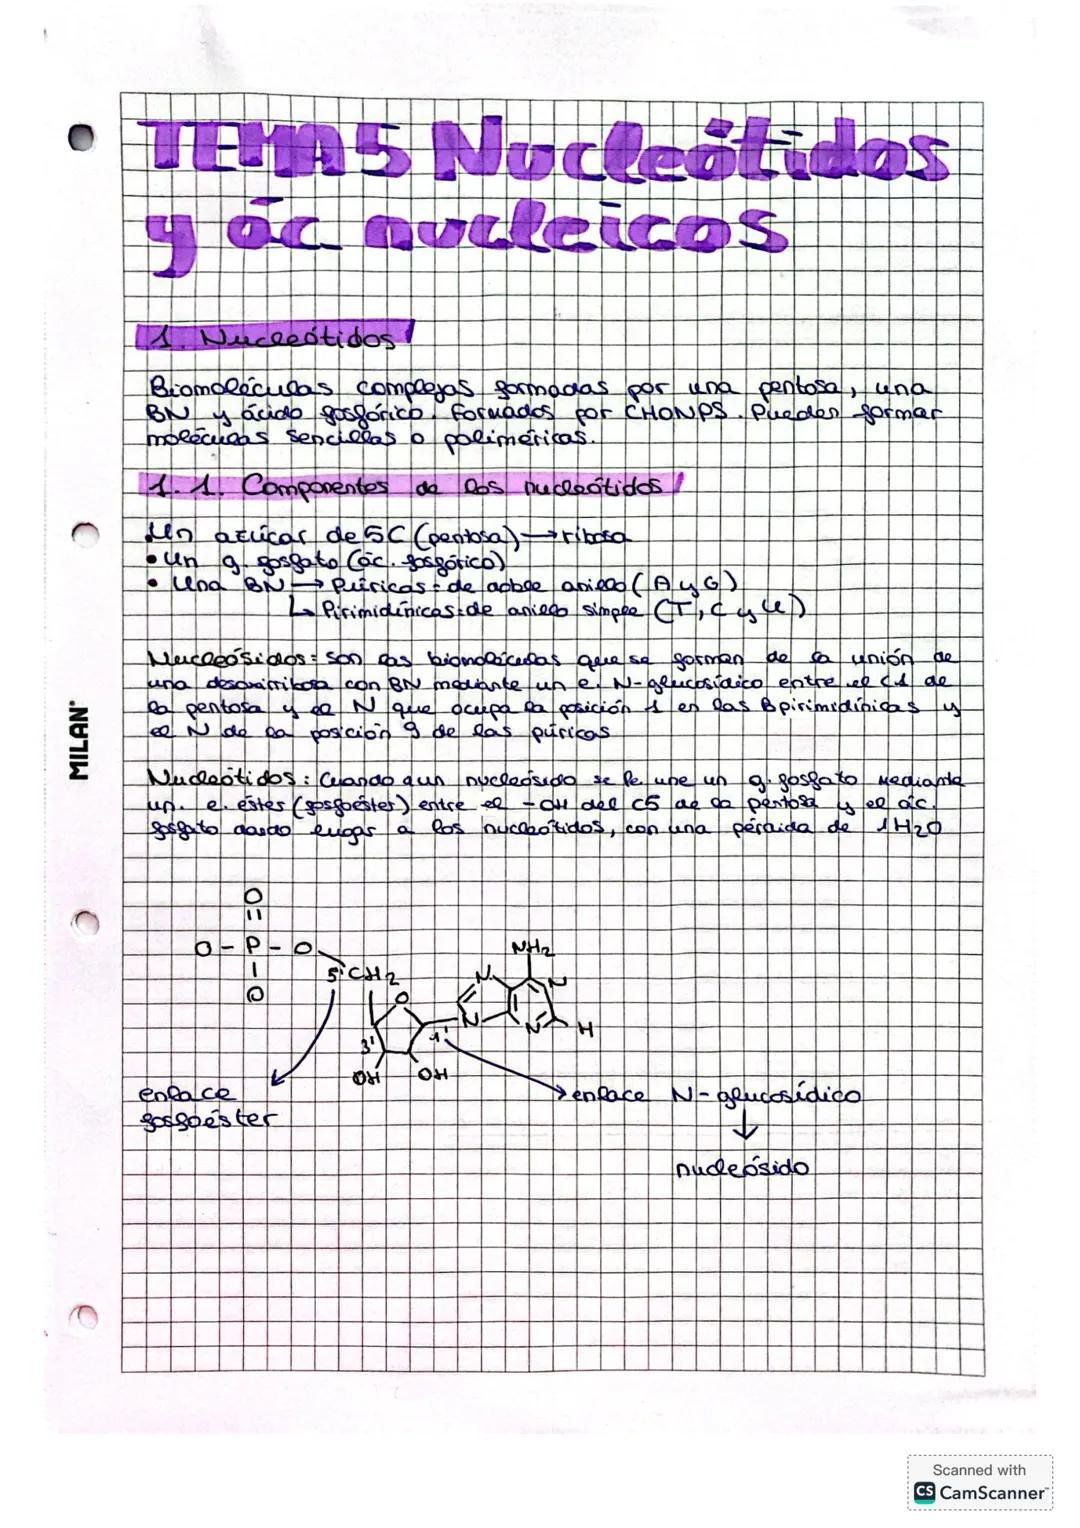 TEMA 5 Nucleótidos
y ác nucleicos
1. Nucleótidos
Biomoléculas complejas formadas por una pentosa, una
BN y ácido fosfórico. Formados por CHONPS. Pueden formar
moléculas sencillas o poliméricas.
1.1. Componentes de los nucleótidos
• Un azúcar de 5C (pentosa) → ribosa
• Un g. fosfato (ác. fosfórico)
• Una BN → Púricas: de doble anillo (A y G)
↳ Pirimidínicas: de anillo simple (T, C y U)
Nucleósidos: son las biomoléculas que se forman de la unión de
una desoxirribosa con BN mediante un e. N-glucosídico entre el C1 de
la pentosa y el N que ocupa la posición 1 en las B pirimidínicas y
el N de la posición 9 de las púricas
Nucleótidos: Cuando a un nucleósido se le une un g. fosfato mediante
un. e. éster (fosfoéster) entre el -OH del C5 de la pentosa y el ác.
fosfato dando lugar a los nucleótidos, con una pérdida de 1H2O
O
O - P - O
O
5' CH2
NH2
N
N
O
N
N
H
3'
1'
OH
OH
enlace
fosfoéster
enlace N-glucosídico
nucleósido
MILAN®
Scanned with
CS CamScanner™